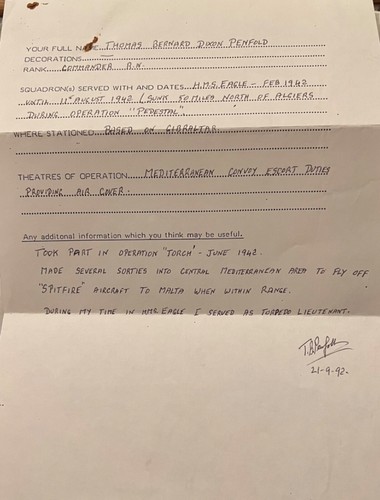 YOUR FULL NAME THOMAS BERNARD DIXON PENFOLD
DECORATIONS
RANK COMMANDER R.N.
SQUADRON(s) SERVED WITH AND DATES H.M.S. EAGLE - FEB 1942
UNTIL 11TH AUGUST 1942 (SUNK 50 MILES NORTH OF ALGIERS
DURING OPERATION "PEDESTAL".
WHERE STATIONED BASED ON GIBRALTAR
THEATRES OF OPERATION MEDITERRANEAN CONVOY ESCORT DUTIES
PROVIDING AIR COVER.
Any additonal information which you think may be useful.
TOOK PART IN OPERATION "TORCH" - JUNE 1942.
MADE SEVERAL SORTIES INTO CENTRAL MEDITERRANEAN AREA TO FLY OFF
"SPITFIRE" AIRCRAFT TO MALTA WHEN WITHIN RANGE.
DURING MY TIME IN HMS EAGLE I SERVED AS TORPEDO LIEUTENANT.
T.B. Penfold
21-9-92.